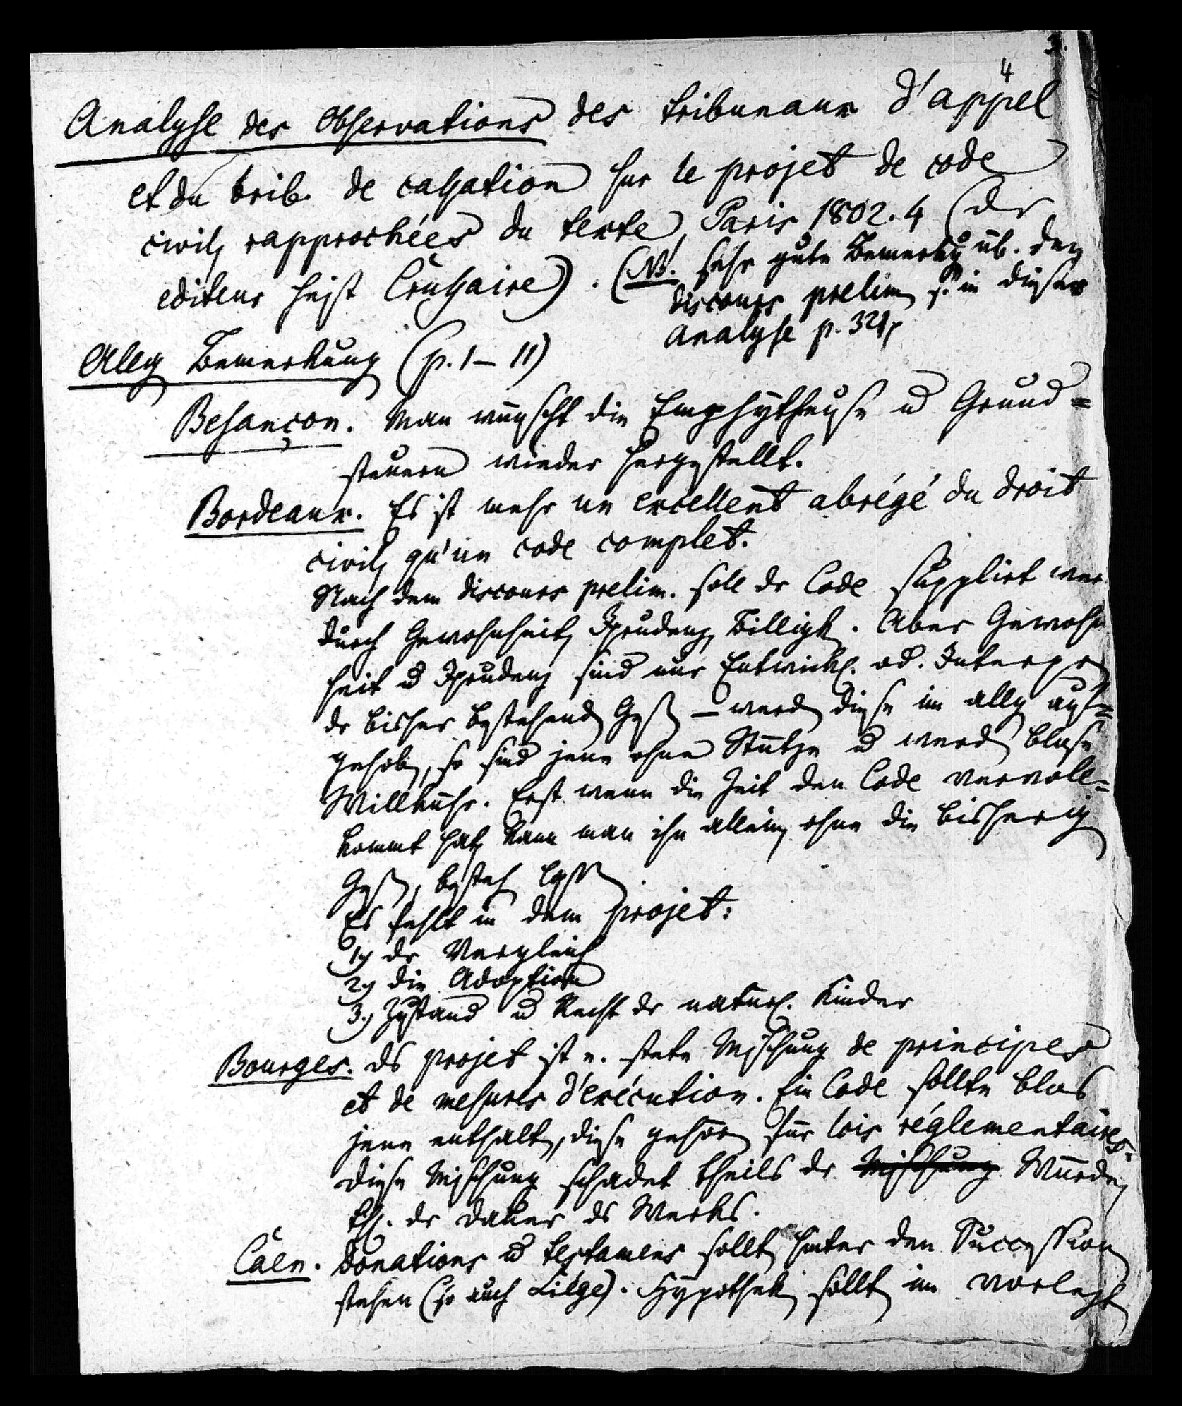 3.
4
Analyse des Observations des tribunaux d'appel
et du trib. de cassation sur le projet de code
civil rapprochées du texte Paris 1802. 4 (Der
editeur heist Crussaire). (NB. sehr gute Bemerkg üb. den
discours prelim s. in dieser
Analyse p. 321
Allg Bemerkung (p. 1–11)
Besançon. Man wünscht die Emphytheuse u Grund=
steuern wieder hergestellt.
Bordeaux. Es ist mehr un excellent abrégé du droit
civil qu'un code complet.
Nach dem discours prelim. soll dr Code supplirt wer
durch Gewohnheit, Jprudenz, Billigk. Aber Gewohn
heit u Jprudenz sind nur Entwickl. od. Interpr
dr bisher bestehend Gess – werd diese im allg auf=
gehob, so sind jene ohne Stütze u werd blose
Willkühr. Erst wenn die Zeit den Code vervoll=
kommt hat, kann man ihn allein, ohne die bisherig
Gess, besteh lass
Es fehlt in dem projet:
1) dr Vergleich
2) die Adoption
3.) Zustand u Recht dr natürl. Kinder
Bourges. ds projet ist e. stete Mischung de principes
et de mesures d'exécution. Ein Code sollte blos
jene enthalt, diese gehör für lois réglementaires.
diese Mischung schadet theils dr Mischung Würde,
th. dr Dauer ds Werks.
Caen. Donations u testamens sollt hinter den Succession
stehen (so auch Liége). Hypothek sollt im vorlezt